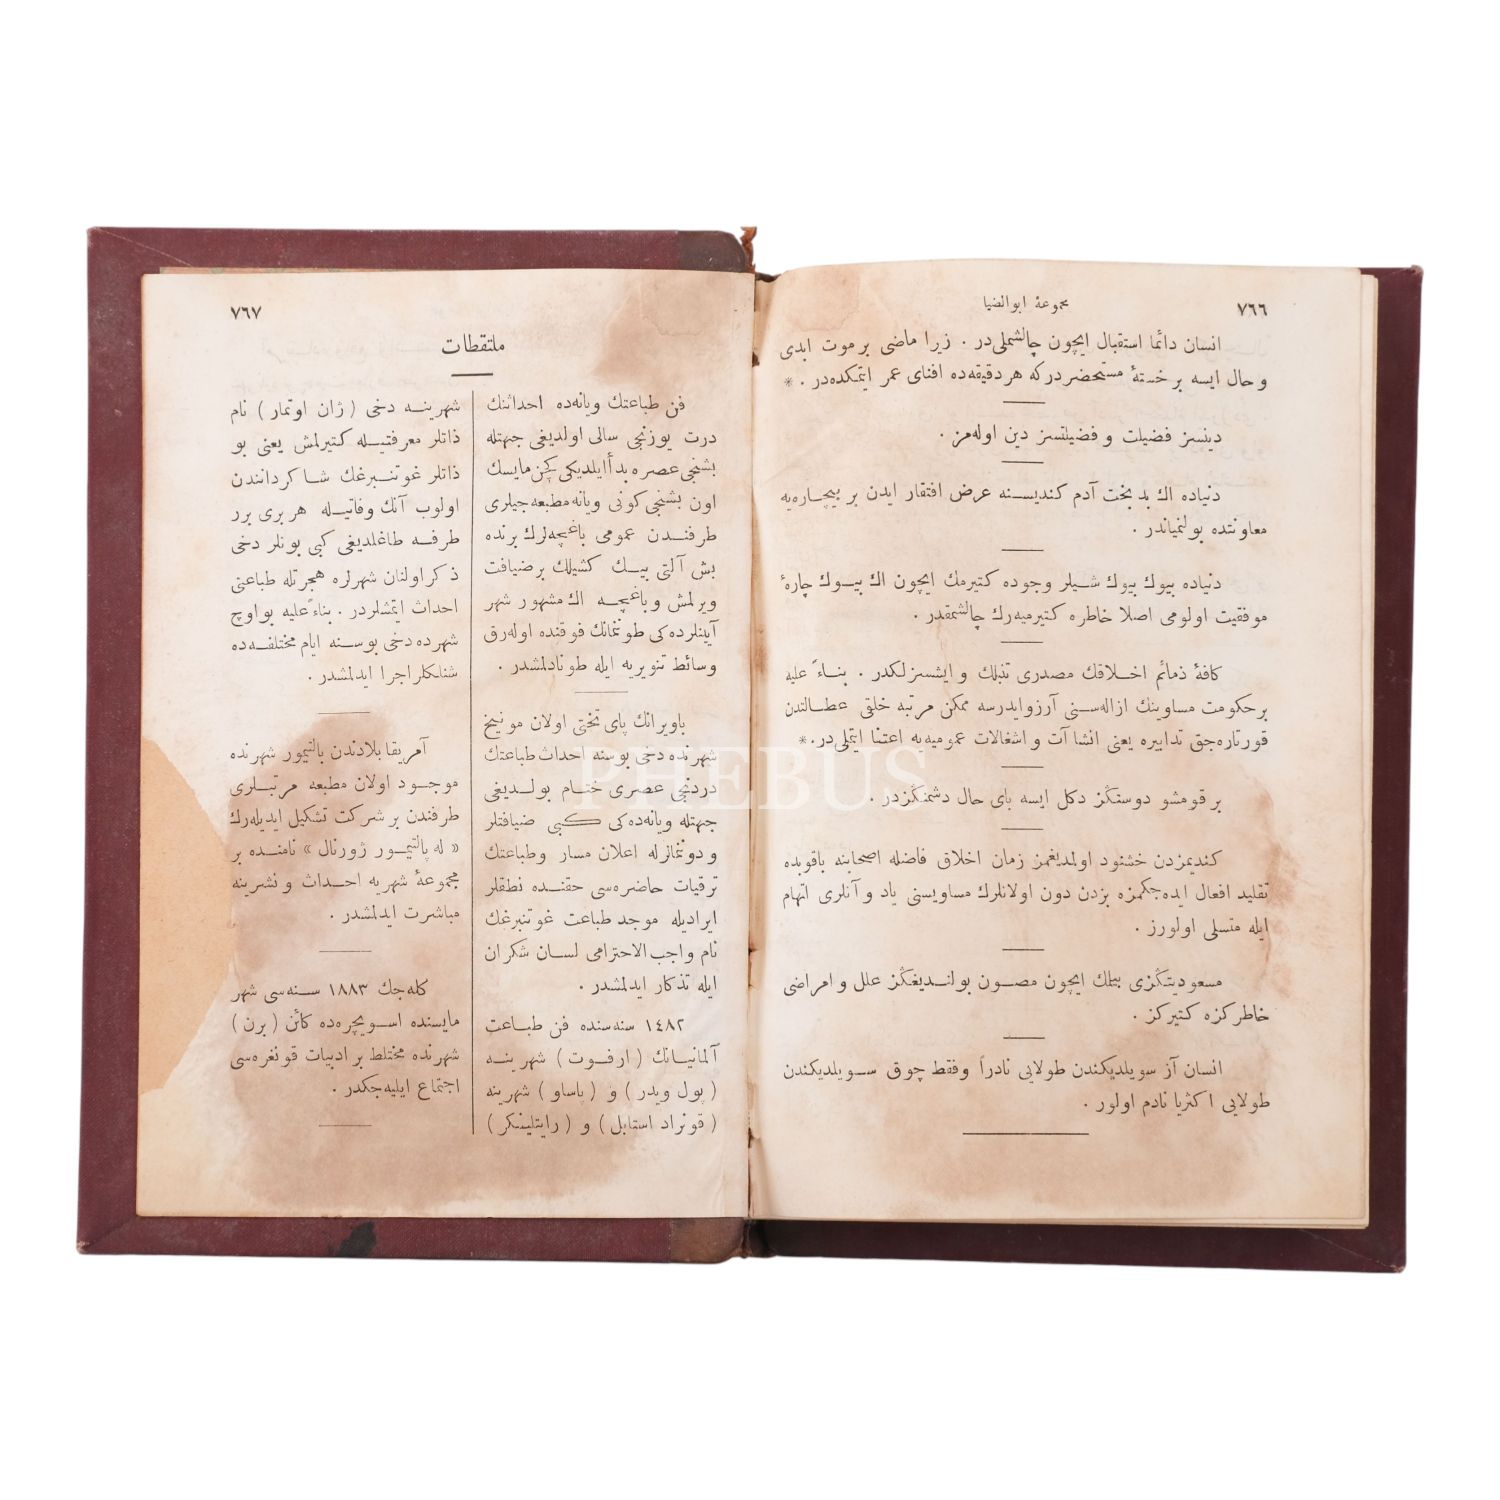 ٧٦٦
مجموعهٔ ابوالضیا
انسان دائما استقبال ایچون چالشملی‌در . زیرا ماضی بر موت ابدی
و حال ایسه بر خستهٔ مستحضردرکه هر دقیقه‌ده افنای عمر ایتمکده‌در . *
دینسز فضیلت و فضیلتسز دین اوله‌مز .
دنیاده اك بد بخت آدم کندیسنه عرض افتقار ایدن بر بیچاره‌یه
معاونتده بولنمیاندر .
دنیاده بیوك بیوك شیلر وجوده کتیرمك ایچون اك بیوك چارهٔ
موفقیت اولومی اصلا خاطره کتیرمیه‌رك چالشمقدر .
کافهٔ ذمائم اخلاقك مصدری تنبلك و ایشسزلکدر . بناءً علیه
بر حکومت مساوینك ازاله‌سنی آرزو ایدرسه ممکن مرتبه خلقی عطالندن
قورتاره‌جق تدابیره یعنی انشاآت و اشغالات عمومیه‌یه اعتنا ایتملی‌در . *
بر قومشو دوستڭز دکل ایسه بای حال دشمنڭزدر .
کندیمزدن خشنود اولمدیغمز زمان اخلاق فاضله اصحابنه باقوبده
تقلید افعال ایده‌جکمزه بزدن دون اولانلرك مساویسنی یاد و آنلری اتهام
ایله متسلی اولورز .
مسعودیتڭزی بیلمك ایچون مصون بولندیغڭز علل و امراضی
خاطرکزه کتیرکز .
انسان آز سویلدیکندن طولایی نادراً وفقط چوق سویلدیکندن
طولایی اکثریا نادم اولور .
٧٦٧
ملتقطات
فن طباعتك ویانه‌ده احداثنك
درت یوزنجی سالی اولدیغی جهتله
بشنجی عصره بدأ ایلدیکی کچن مایسك
اون بشنجی کونی ویانه مطبعه‌جیلری
طرفندن عمومی باغچه‌لرك برنده
بش آلتی بیك کشیلك بر ضیافت
ویرلمش و باغچه اك مشهور شهر
آیینلرده‌کی طوننمانك فوقنده اوله‌رق
وسائط تنویریه ایله طونادلمشدر .
باویرانك پای تختی اولان مونیخ
شهرنده دخی بوسنه احداث طباعتك
دردنجی عصری ختام بولدیغی
جهتله ویانه‌ده‌کی کبی ضیافتلر
و دوننمانرله اعلان مسار وطباعتك
ترقیات حاضره‌سی حقنده نطقلر
ایرادیله موجد طباعت غوتنبرغك
نام واجب الاحترامی لسان شکران
ایله تذکار ایدلمشدر .
١٤٨٢ سنه‌سنده فن طباعت
آلمانیانك ( ارفوت ) شهرینه
( پول ویدر ) و ( پاساو ) شهرینه
( قونراد استابل ) و ( رایتلینکر )
شهرینه دخی ( ژان اوتمار ) نام
ذاتلر معرفتیله کتیرلمش یعنی بو
ذاتلر غوتنبرغك شاکرداننندن
اولوب آنك وفاتیله هر بری برر
طرفه طاغلدیغی کبی بونلر دخی
ذکر اولنان شهرلره هجرتله طباعتی
احداث ایتمشلردر . بناءً علیه بو اوچ
شهرده دخی بوسنه ایام مختلفه‌ده
شنلکلر اجرا ایدلمشدر .
آمریقا بلادندن بالتیمور شهرنده
موجود اولان مطبعه مرتبلری
طرفندن بر شرکت تشکیل ایدیله‌رك
« له پالتیمور ژورنال » نامنده بر
مجموعهٔ شهریه احداث و نشرینه
مباشرت ایدلمشدر .
کله‌جك ١٨٨٣ سنه‌سی شهر
مایسنده اسویچره‌ده کائن ( برن )
شهرنده مختلط بر ادبیات قونغره‌سی
اجتماع ایلیه‌جکدر .
PHEBUS